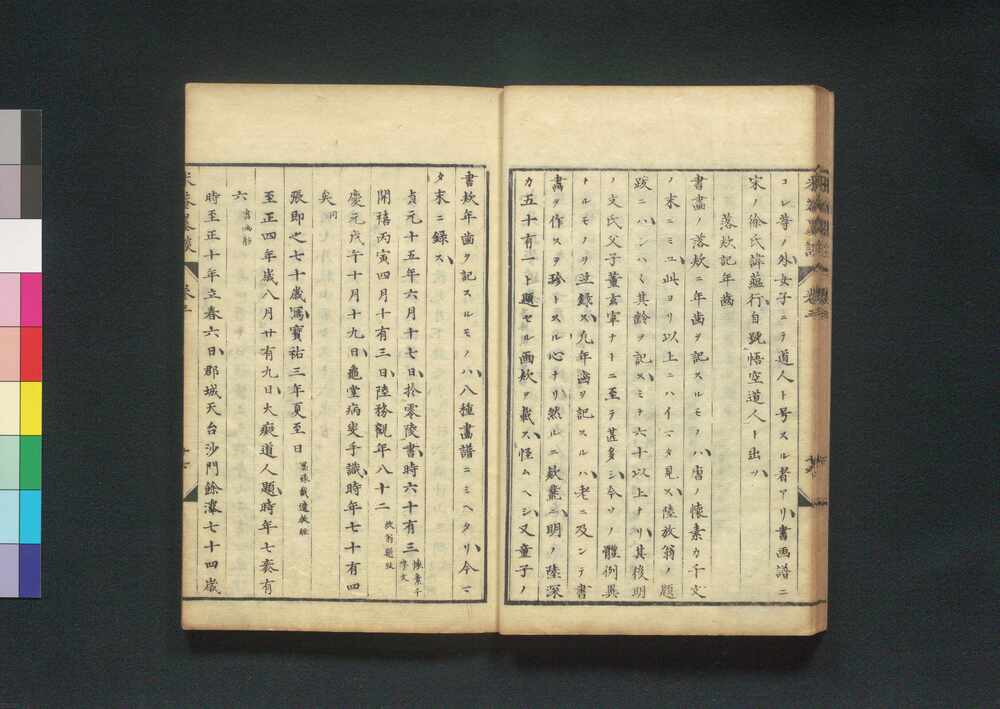 コレ等ノ外女子ニテ道人ト号スル者アリ書画譜ニ
宋ノ徐氏諱蘊行自號悟空道人ト出ツ
落欸記年歯
書畵ノ落欸ニ年歯ヲ記スルモノハ唐ノ懐素カ千文
ノ末ニミユ此ヨリ以上ニハイマタ見ス陸放翁ノ題
跋ニハシハ〱其齢ヲ記スミナ六十以上ナリ其後明
ノ文氏父子董玄宰ナトニ至テ甚多シ今ソノ體例異
ナルモノヲ並錄ス凢年歯ヲ記スルハ老ニ及ンテ書
畵ヲ作スヲ珍トスル心ナリ然ルニ欸識ニ明ノ陸深
カ五十有一ト題セル画欸ヲ載ス怪ムヘシ又童子ノ
書欸年歯ヲ記スルモノハ八種畵譜ニミヘタリ今マ
タ末ニ錄ス
貞元十五年六月十七日於零陵書時六十有三 懐素千字文
開禧丙寅四月十有三日陸務觀年八十二 放翁題跋
慶元戊午十月十九日龜堂病叟手識時年七十有四
矣 同
張即之七十歳寫寶祐三年夏至日
至正四年歳八月廿有九日大癡道人題時年七袠有
六 書画舫
時至正十年立春六日郡城天台沙門餘澤七十四歳